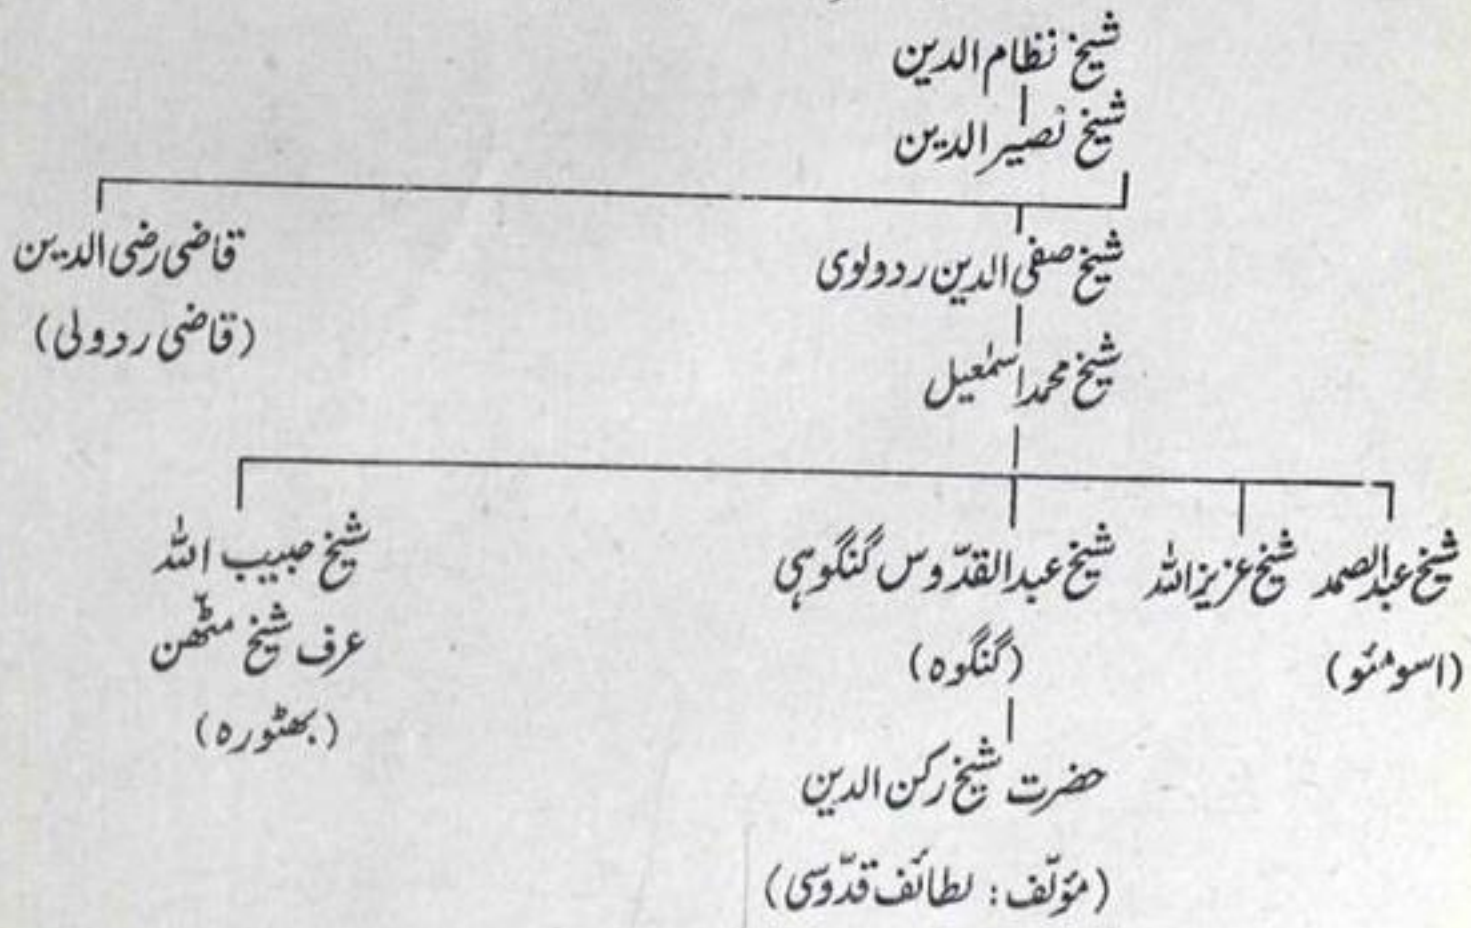 شیخ نظام الدین
شیخ نصیر الدین
شیخ صفی الدین ردولوی
قاضی رضی الدین
(قاضی ردولی)
شیخ محمد اسمٰعیل
شیخ عبدالصمد
شیخ عزیز اللہ
شیخ عبدالقدّوس گنگوہی
شیخ حبیب اللہ
عرف شیخ مٹّھن
(اسومئو)
(گنگوہ)
(بھٹورہ)
حضرت شیخ رکن الدین
(مؤلّف: لطائف قدّوسی)